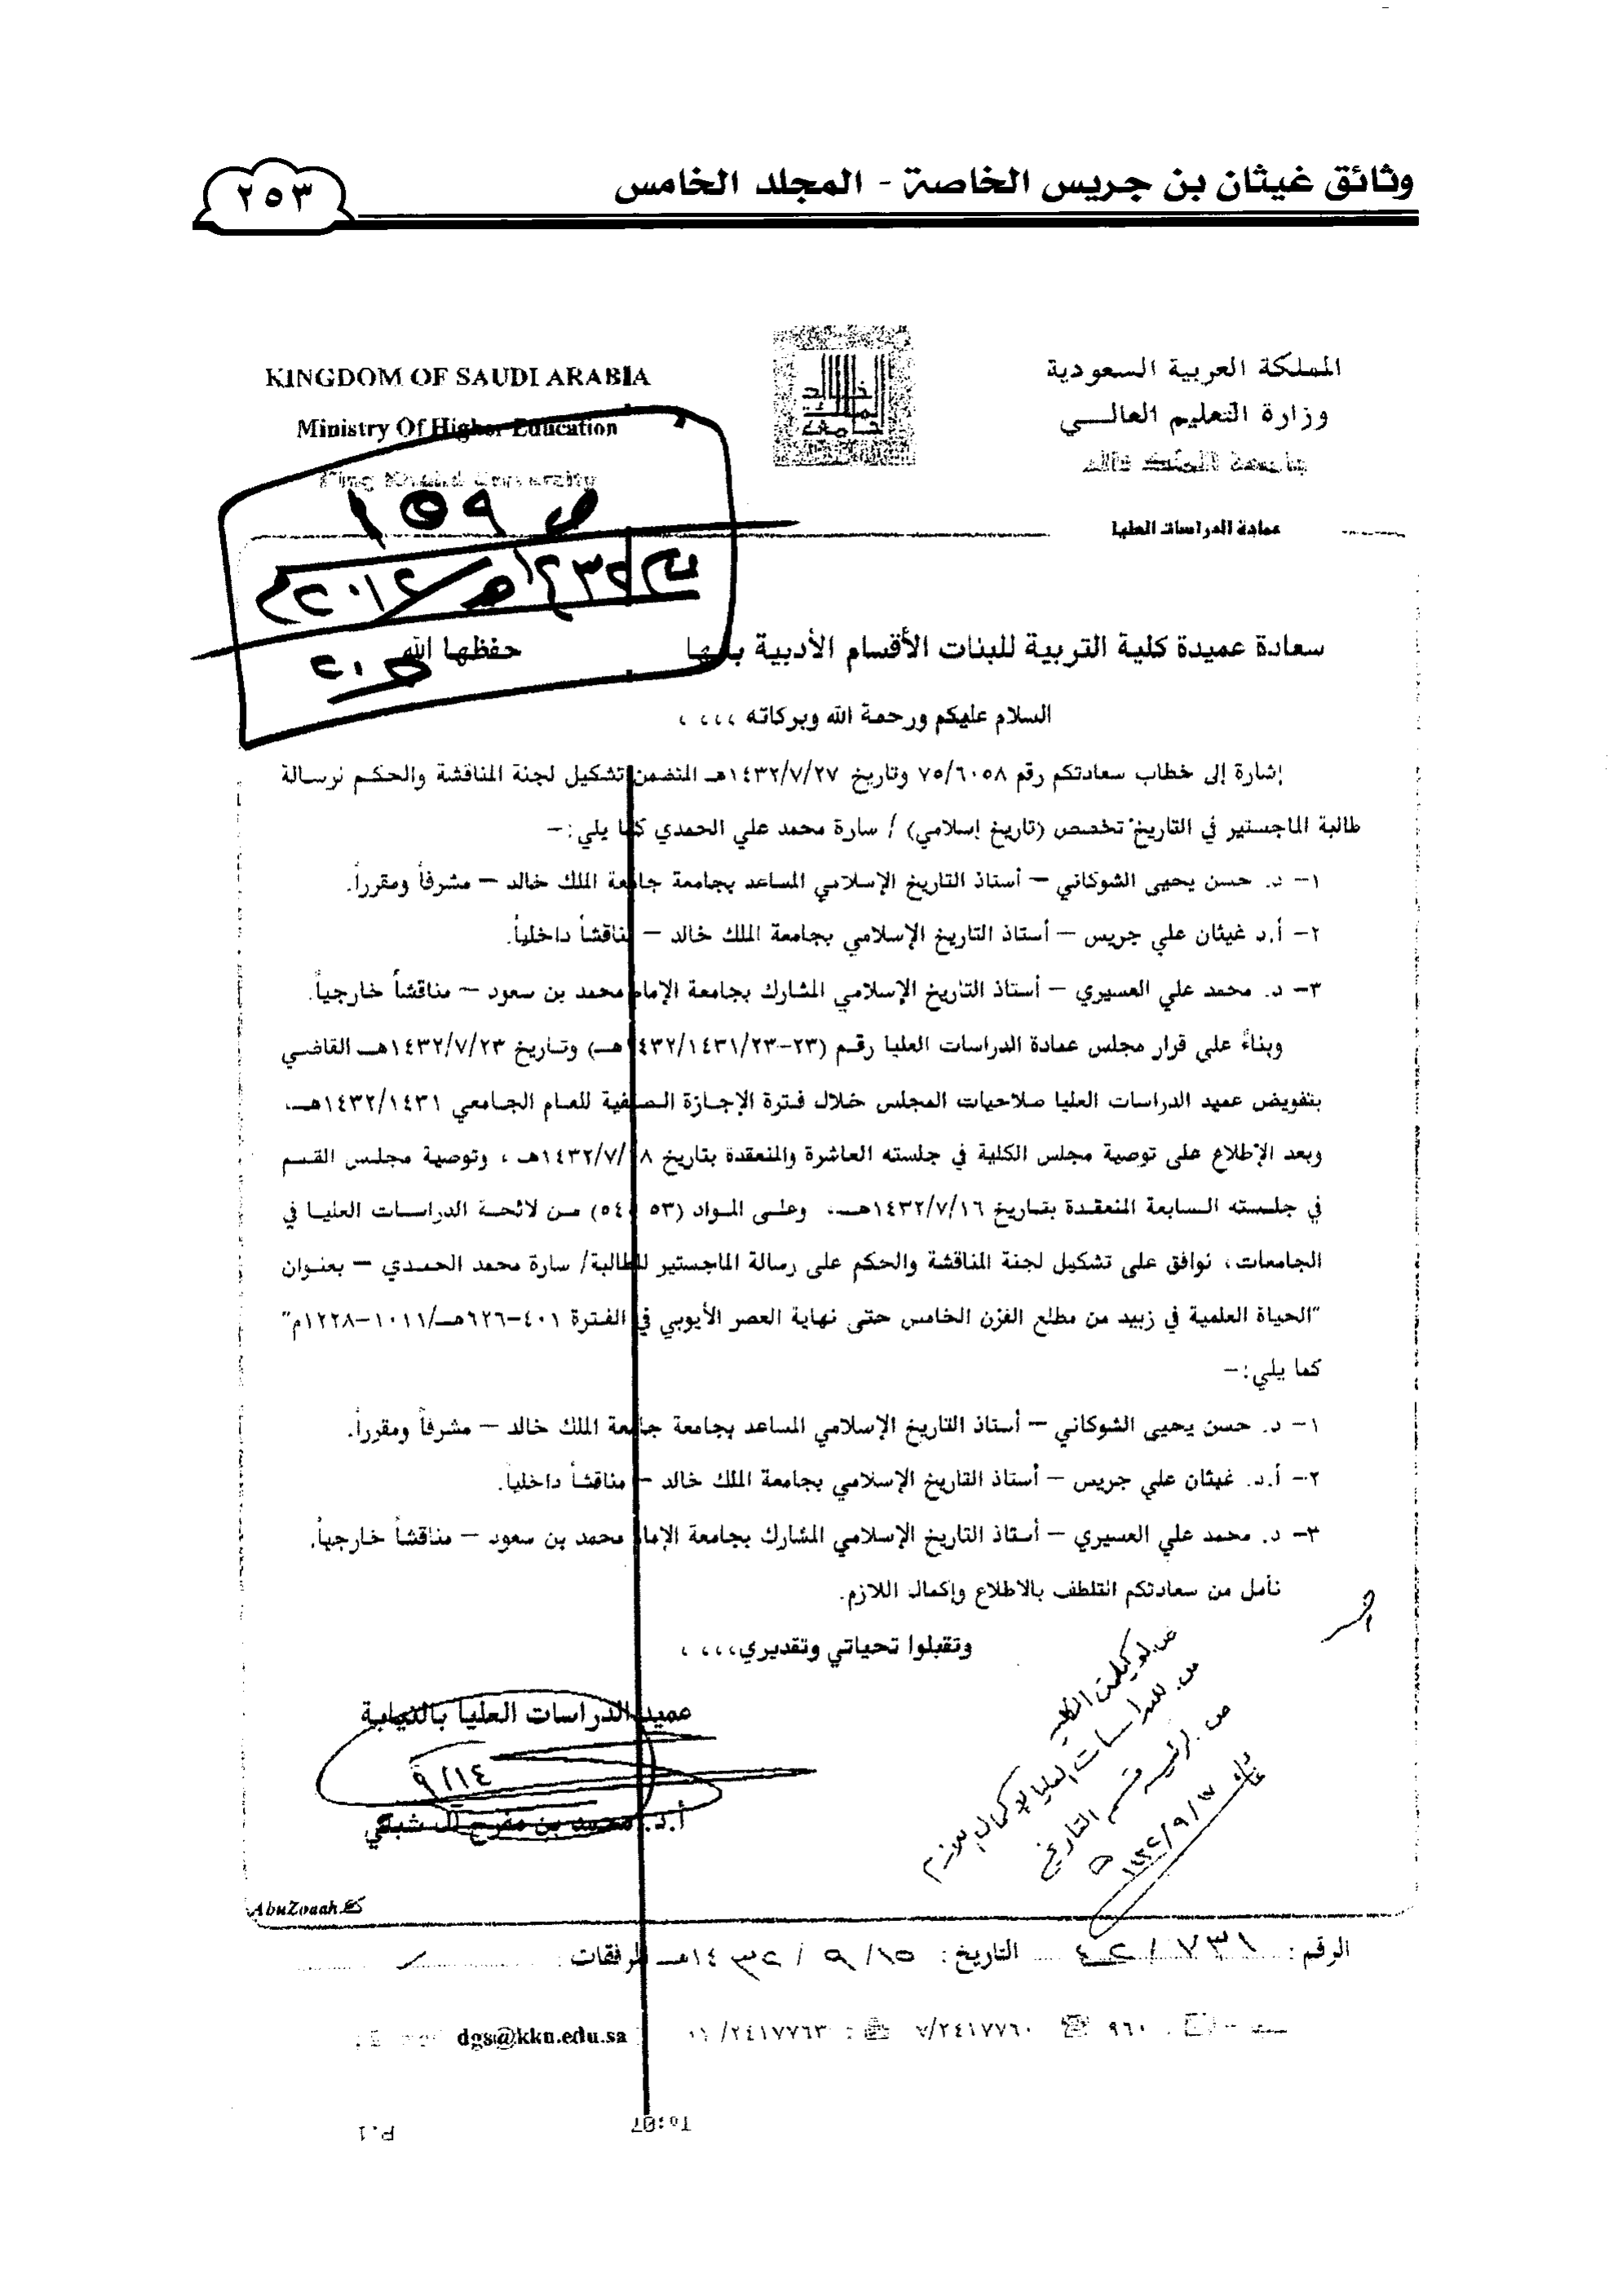 وثائق غيثان بن جريس الخاصة - المجلد الخامس
٢٥٣
المملكة العربية السعودية
وزارة التعليم العالــي
جامعة الملك خالد
عمادة الدراسات العليا
KINGDOM OF SAUDI ARABIA
Ministry Of Higher Education
King Khalid University
ص ١٥٩
سعادة عميدة كلية التربية للبنات الأقسام الأدبية بأبها حفظها الله
السلام عليكم ورحمة الله وبركاته ،،،،
إشارة إلى خطاب سعادتكم رقم ٧٥/٦٠٥٨ وتاريخ ١٤٣٢/٧/٢٧هـ المتضمن تشكيل لجنة المناقشة والحكم لرسالة
طالبة الماجستير في التاريخ تخصص (تاريخ إسلامي) / سارة محمد علي الحمدي كما يلي:–
١– د. حسن يحيى الشوكاني – أستاذ التاريخ الإسلامي المساعد بجامعة جامعة الملك خالد – مشرفاً ومقرراً.
٢– أ.د غيثان علي جريس – أستاذ التاريخ الإسلامي بجامعة الملك خالد – مناقشاً داخلياً.
٣– د. محمد علي العسيري – أستاذ التاريخ الإسلامي المشارك بجامعة الإمام محمد بن سعود – مناقشاً خارجياً.
وبناءً على قرار مجلس عمادة الدراسات العليا رقم (٢٣–١٤٣٢/١٤٣١/٢٣هـ) وتاريخ ١٤٣٢/٧/٢٣هـ القاضي
بتفويض عميد الدراسات العليا صلاحيات المجلس خلال فترة الإجازة الصيفية للعام الجامعي ١٤٣٢/١٤٣١هـ،
وبعد الإطلاع على توصية مجلس الكلية في جلسته العاشرة والمنعقدة بتاريخ ‎/٧/١٤٣٢هـ ، وتوصية مجلس القسم
في جلسته السابعة المنعقدة بتاريخ ١٤٣٢/٧/١٦هـ، وعلى المواد (٥٣ ٥٤) من لائحة الدراسات العليا في
الجامعات، نوافق على تشكيل لجنة المناقشة والحكم على رسالة الماجستير للطالبة/ سارة محمد الحمدي – بعنوان
"الحياة العلمية في زبيد من مطلع القرن الخامس حتى نهاية العصر الأيوبي في الفترة ٤٠١–٦٢٦هـ/١٠١١–١٢٢٨م"
كما يلي:–
١– د. حسن يحيى الشوكاني – أستاذ التاريخ الإسلامي المساعد بجامعة جامعة الملك خالد – مشرفاً ومقرراً.
٢– أ.د. غيثان علي جريس – أستاذ التاريخ الإسلامي بجامعة الملك خالد – مناقشاً داخلياً.
٣– د. محمد علي العسيري – أستاذ التاريخ الإسلامي المشارك بجامعة الإمام محمد بن سعود – مناقشاً خارجياً.
نأمل من سعادتكم التلطف بالاطلاع وإكمال اللازم.
وتقبلوا تحياتي وتقديري،،،،
عميد الدراسات العليا بالنيابة
٩/١٤
أ.د. محمد بن مفرح آل شبلي
ص. لوكيلة الكلية
ص. للدراسات العليا لإكمال اللازم
ص. لرئيسة قسم التاريخ
AbuZonah
الرقم: ٢٤/٧٣١ التاريخ: ١٥/٩/١٤٣٢هـ المرفقات:
٩٦٠ ٧/٢٤١٧٧٦٠ ٠٧/٢٤١٧٧٦٣ dgs@kku.edu.sa
To:07
P.1